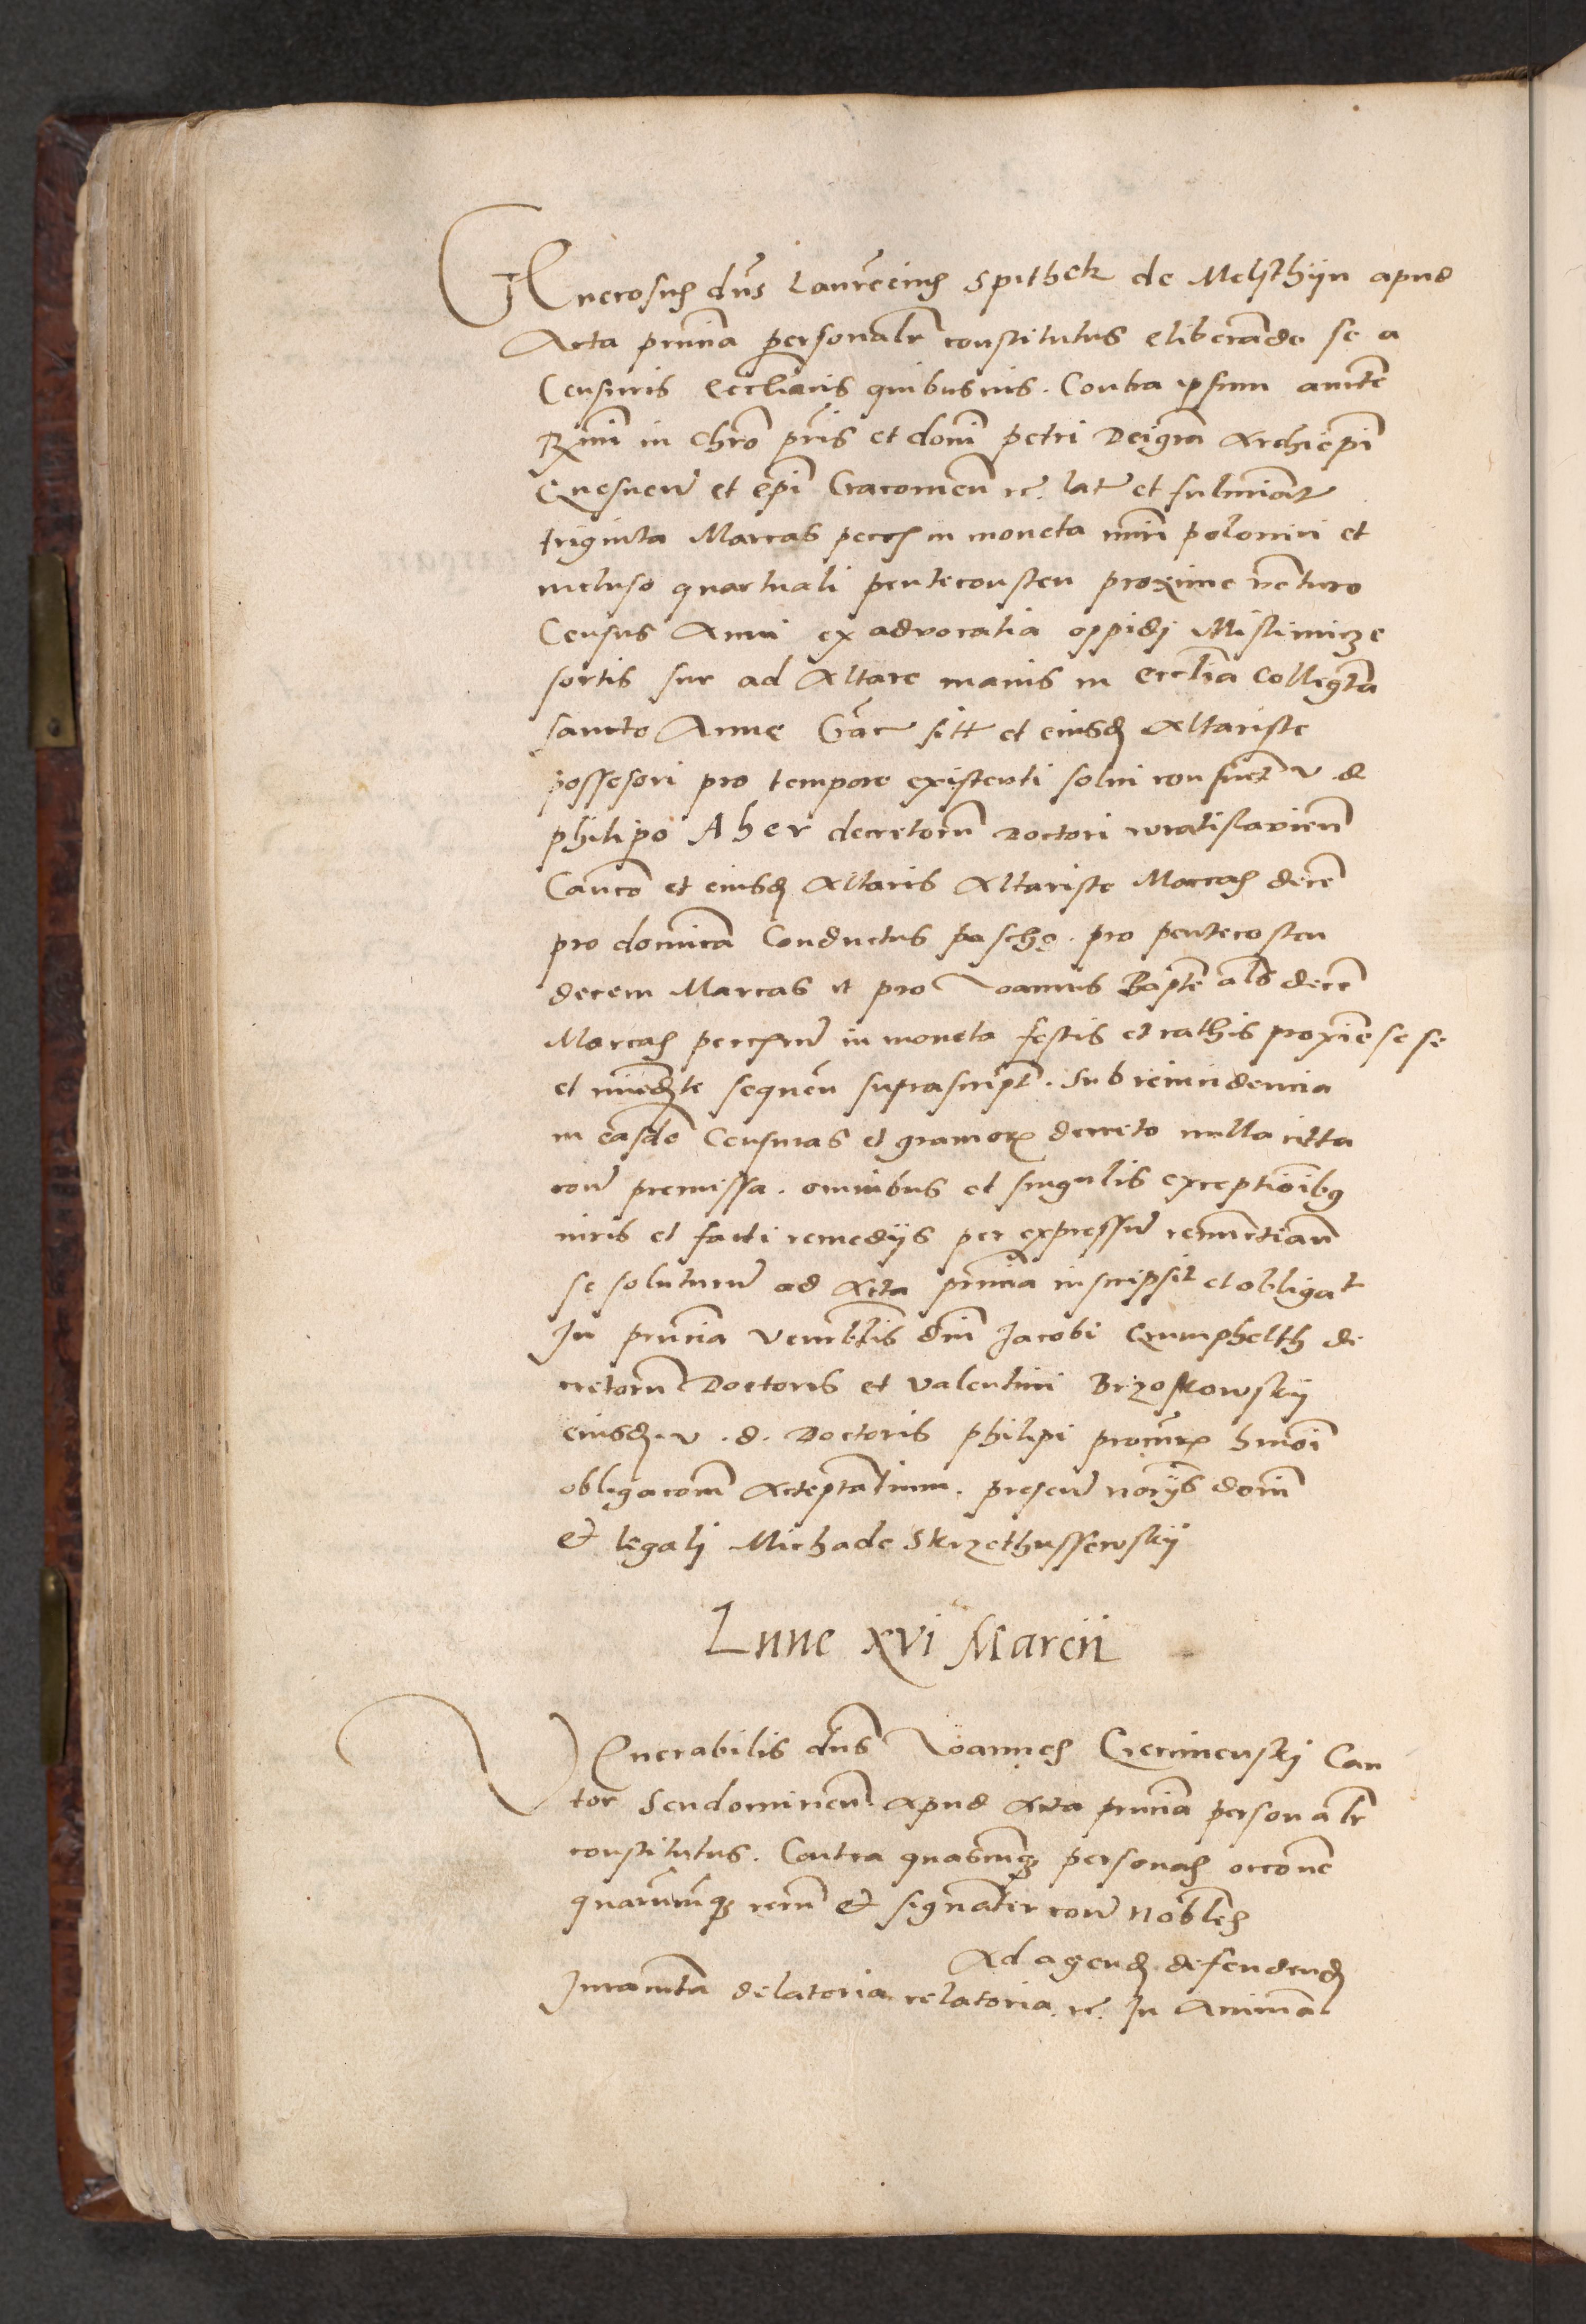 GEnerosus dns Laurecius Spithek de Melsthijn apud
Acta pncia personalr constitutus eliberando se a
Censuris Ecclīacis quibusuis. Contra ipsum aucte
Rmi in Chro pris et dom petri Dei gra Archiepi
Gnesnen et epi Cracouien rc. lat et fulminat
triginta Marcas pecch in moneta nūri polonici et
incluso quartuali penthecousten proxime venturo
Census Anui ex advocatia oppidi Mstimicze
sortis sue ad Altare maius in Ecclia Collegta
sancte Anne Crac sitt et eiusd Altariste
possesori pro tempore existenti solui consuet v. d
philipo Aber decretorum Doctori wratislavien
Canco et eiusd Altaris Altariste Marcas decem
pro domica Conductus pasche. pro pentecosten
decem Marcas et pro Joannis Bapte als decem
Marcas pecchun in moneta festis et rathis proxie se se
et imediate sequen suprascript. Sub reincidencia
in easde Censuras et gramor decreto nulla citta
con premissa. omnibus et singulis exceptioibus
iuris et facti remedijs per expressum renuntiam
se soluturum ad Acta pncia inscripsit et obligat
In pncia Venerblis dni Jacobi Erumphelth de
cretorum Doctoris et Valentini Brzostowskij
eiusd. v. d. Doctoris philipi procur hmoi
obligacom Acceptantium. presen norijs dom
et legalj Michade Skrzethussewskij
Lune xvi Marcii
VEnerabilis dns Joannes Czerminenskj Can
tor Sendomirien Apud Acta pncia personalr
constitutus. Contra quascuq personas occone
quarucuq rerum et signater con Nobles
Ad agend. defendend
Juramta delatoria relatoria. rc. In Animā